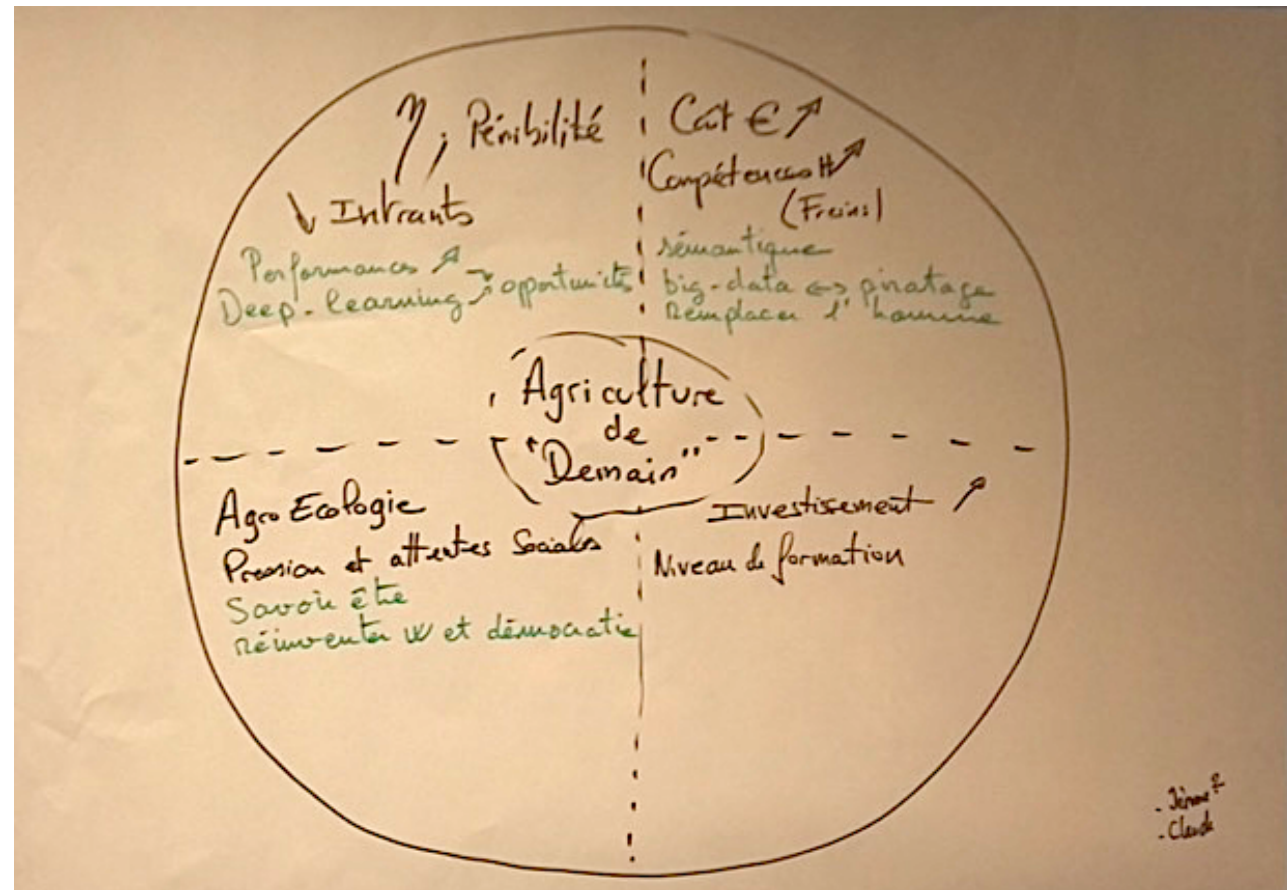 η ; Pénibilité
↘ Intrants
Performances ↗
Deep-learning ↗ → opportunités
Coût € ↗
Compétences H ↗
(Freins)
sémantique
big-data ↔ piratage
Remplacer l'homme
Agriculture
de
"Demain"
Agro Ecologie
Pression et attentes Sociales
Savoir être
réinventer W et démocratie
Investissement ↗
Niveau de formation
- Claude